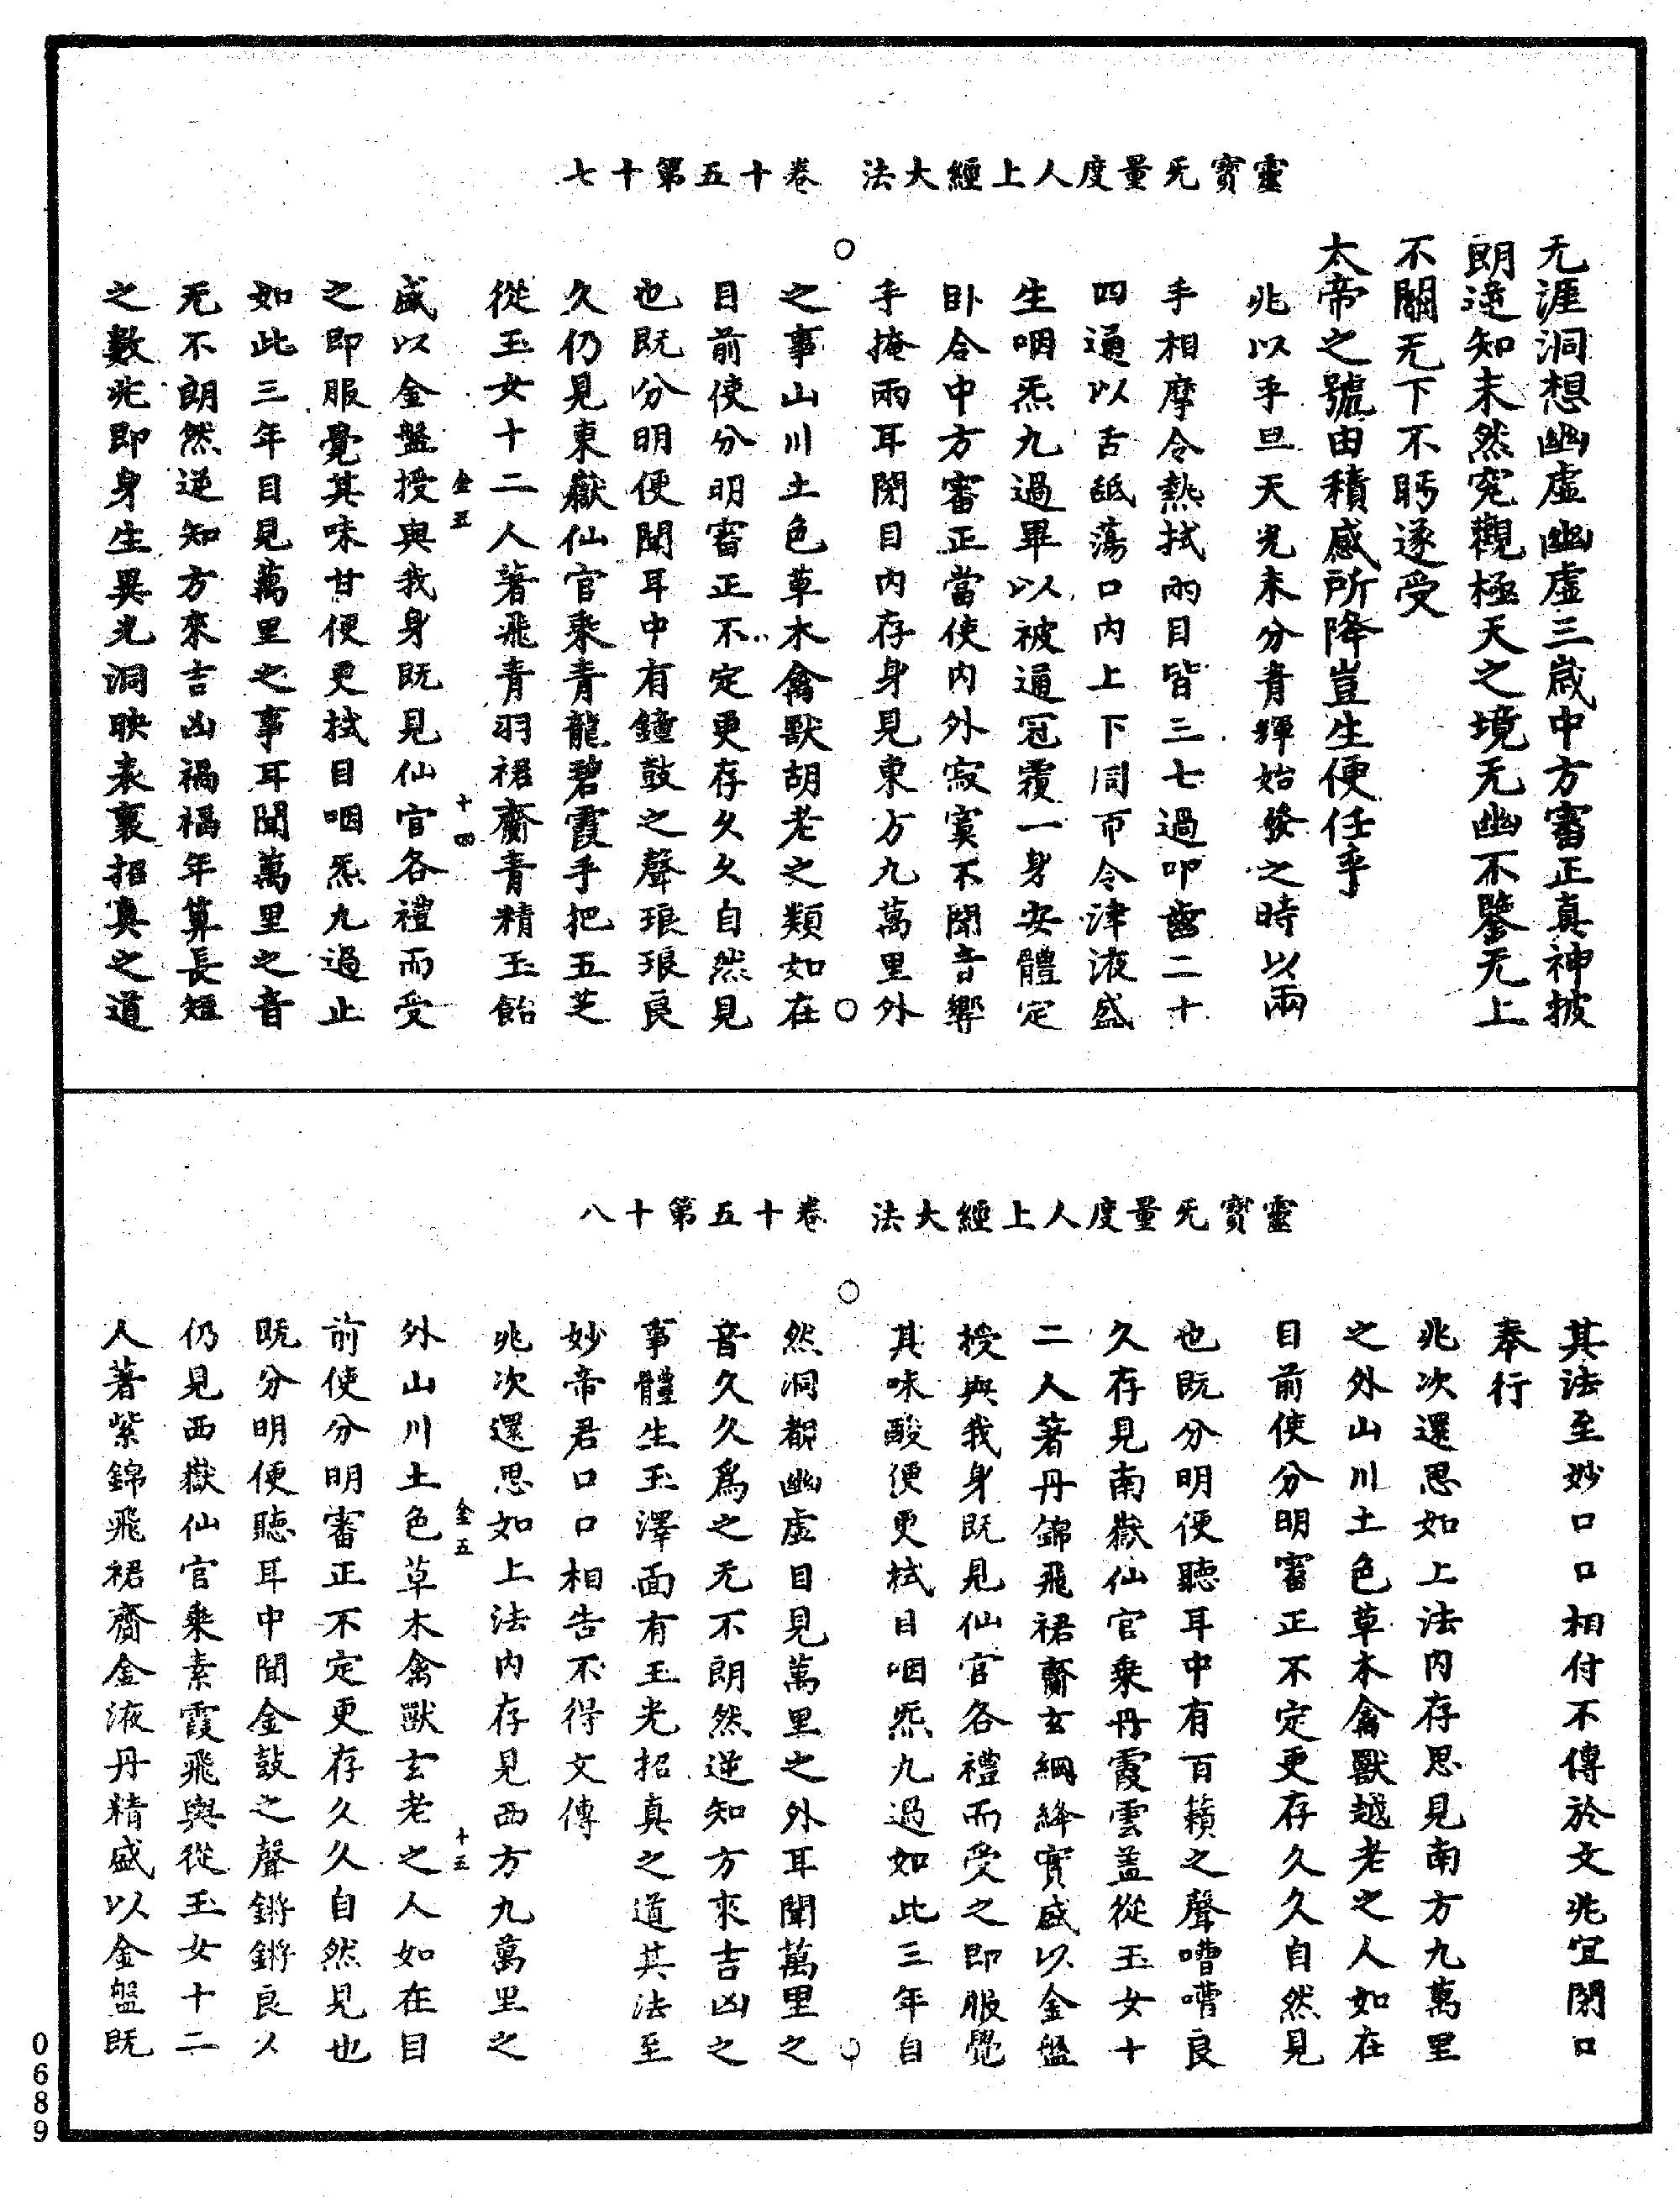 靈寶无量度人上經大法　卷十五第十七
无涯洞想幽虛幽虛三歲中方審正真神披
朗逆知未然究觀極天之境无幽不鑒无上
不關无下不眄遂受
太帝之號由積感所降豈生便任乎
兆以平旦天光未分青輝始發之時以兩
手相摩令熱拭兩目皆三七過叩齒二十
四通以舌䑛蕩口內上下同帀令津液盛
生咽炁九過畢以被通冠覆一身安體定
臥合中方審正當使內外寂寞不聞音響
手掩兩耳閉目內存身見東方九萬里外
之事山川土色草木禽獸胡老之類如在
目前使分明審正不定更存久久自然見
也既分明便聞耳中有鐘鼓之聲琅琅良
久仍見東嶽仙官乘青龍碧霞手把五芝
從玉女十二人著飛青羽裙齎青精玉飴
金五　十四
盛以金盤授與我身既見仙官各禮而受
之即服覺其味甘便更拭目咽炁九過止
如此三年目見萬里之事耳聞萬里之音
无不朗然逆知方來吉凶禍福年算長短
之數兆即身生異光洞映表裏招真之道
靈寶无量度人上經大法　卷十五第十八
其法至妙口口相付不傳於文兆宜閉口
奉行
兆次還思如上法內存思見南方九萬里
之外山川土色草木禽獸越老之人如在
目前使分明審正不定更存久久自然見
也既分明便聽耳中有百籟之聲嘈嘈良
久存見南嶽仙官乘丹霞雲蓋從玉女十
二人著丹錦飛裙齎玄綱絳實盛以金盤
授與我身既見仙官各禮而受之即服覺
其味酸便更拭目咽炁九過如此三年自
然洞覩幽虛目見萬里之外耳聞萬里之
音久久為之无不朗然逆知方來吉凶之
事體生玉澤面有玉光招真之道其法至
妙帝君口口相告不得文傳
兆次還思如上法內存見西方九萬里之
金五　十五
外山川土色草木禽獸玄老之人如在目
前使分明審正不定更存久久自然見也
既分明便聽耳中聞金鼓之聲鏘鏘良久
仍見西嶽仙官乘素霞飛輿從玉女十二
人著紫錦飛裙齎金液丹精盛以金盤既
0689